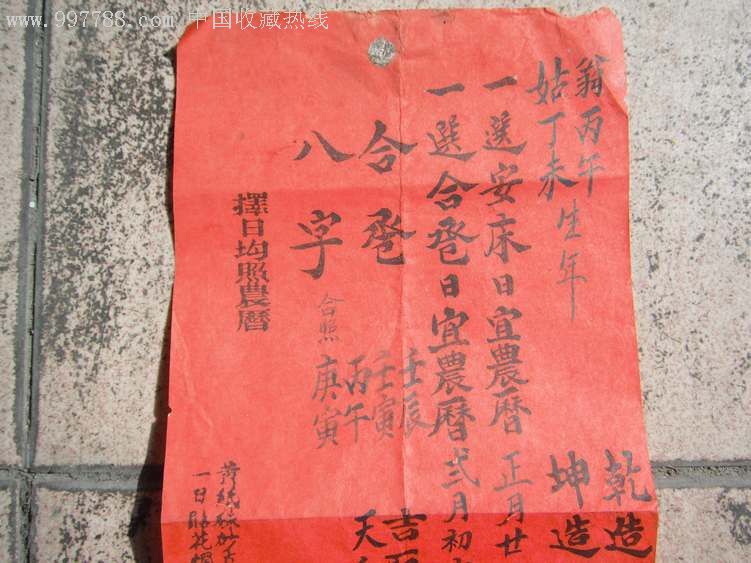 www.997788.com 中国收藏热线
翁丙午
姑丁未生年
乾造
坤造
一選安床日宜農曆正月廿
一選合卺日宜農曆弍月初
合卺
八字
合照
壬辰
壬寅
丙午
庚寅
吉
天
擇日均照農曆
一日貼花燭